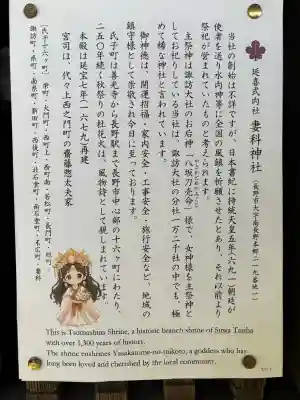 延喜式内社 妻科神社
（長野市大字南長野本郷二一九番地一）
当社の創始は不詳ですが、日本書紀に持統天皇五年（六九一）朝廷が
使者を遣り水内神等に全国の風鎮を祈願させたとあり、それ以前より
祭祀が営まれていたものと考えられます。
主祭神は諏訪大社のお后神「八坂刀売命」様で、女神様を主祭神と
してお祀りしている当社は、諏訪大社の分社一万二千社の中でも、極
めて稀な神社と言われています。
御神徳は、開運招福・家内安全・工事安全・旅行安全など、地域の
鎮守様として崇敬され今日に至っております。
氏子町は善光寺から長野駅まで長野市中心部の十六ヶ町にわたり、
二五〇年続く秋祭りの杜花火は、風物詩として親しまれています。
本殿は延宝七年（一六七九）再建
宮司は、代々上西之門町の齋藤惣太夫家
（氏子十六ヶ町） 栄町・大門町・西町上・西町南・若松町・長門町・旭町・
諏訪町・県町・南県町・新田町・西後町・北石堂町・南石堂町・末広町・妻科
This is Tsumashina Shrine, a historic branch shrine of Suwa Taisha
with over 1,300 years of history.
The shrine enshrines Yasakatome-no-mikoto, a goddess who has
long been loved and cherished by the local community.